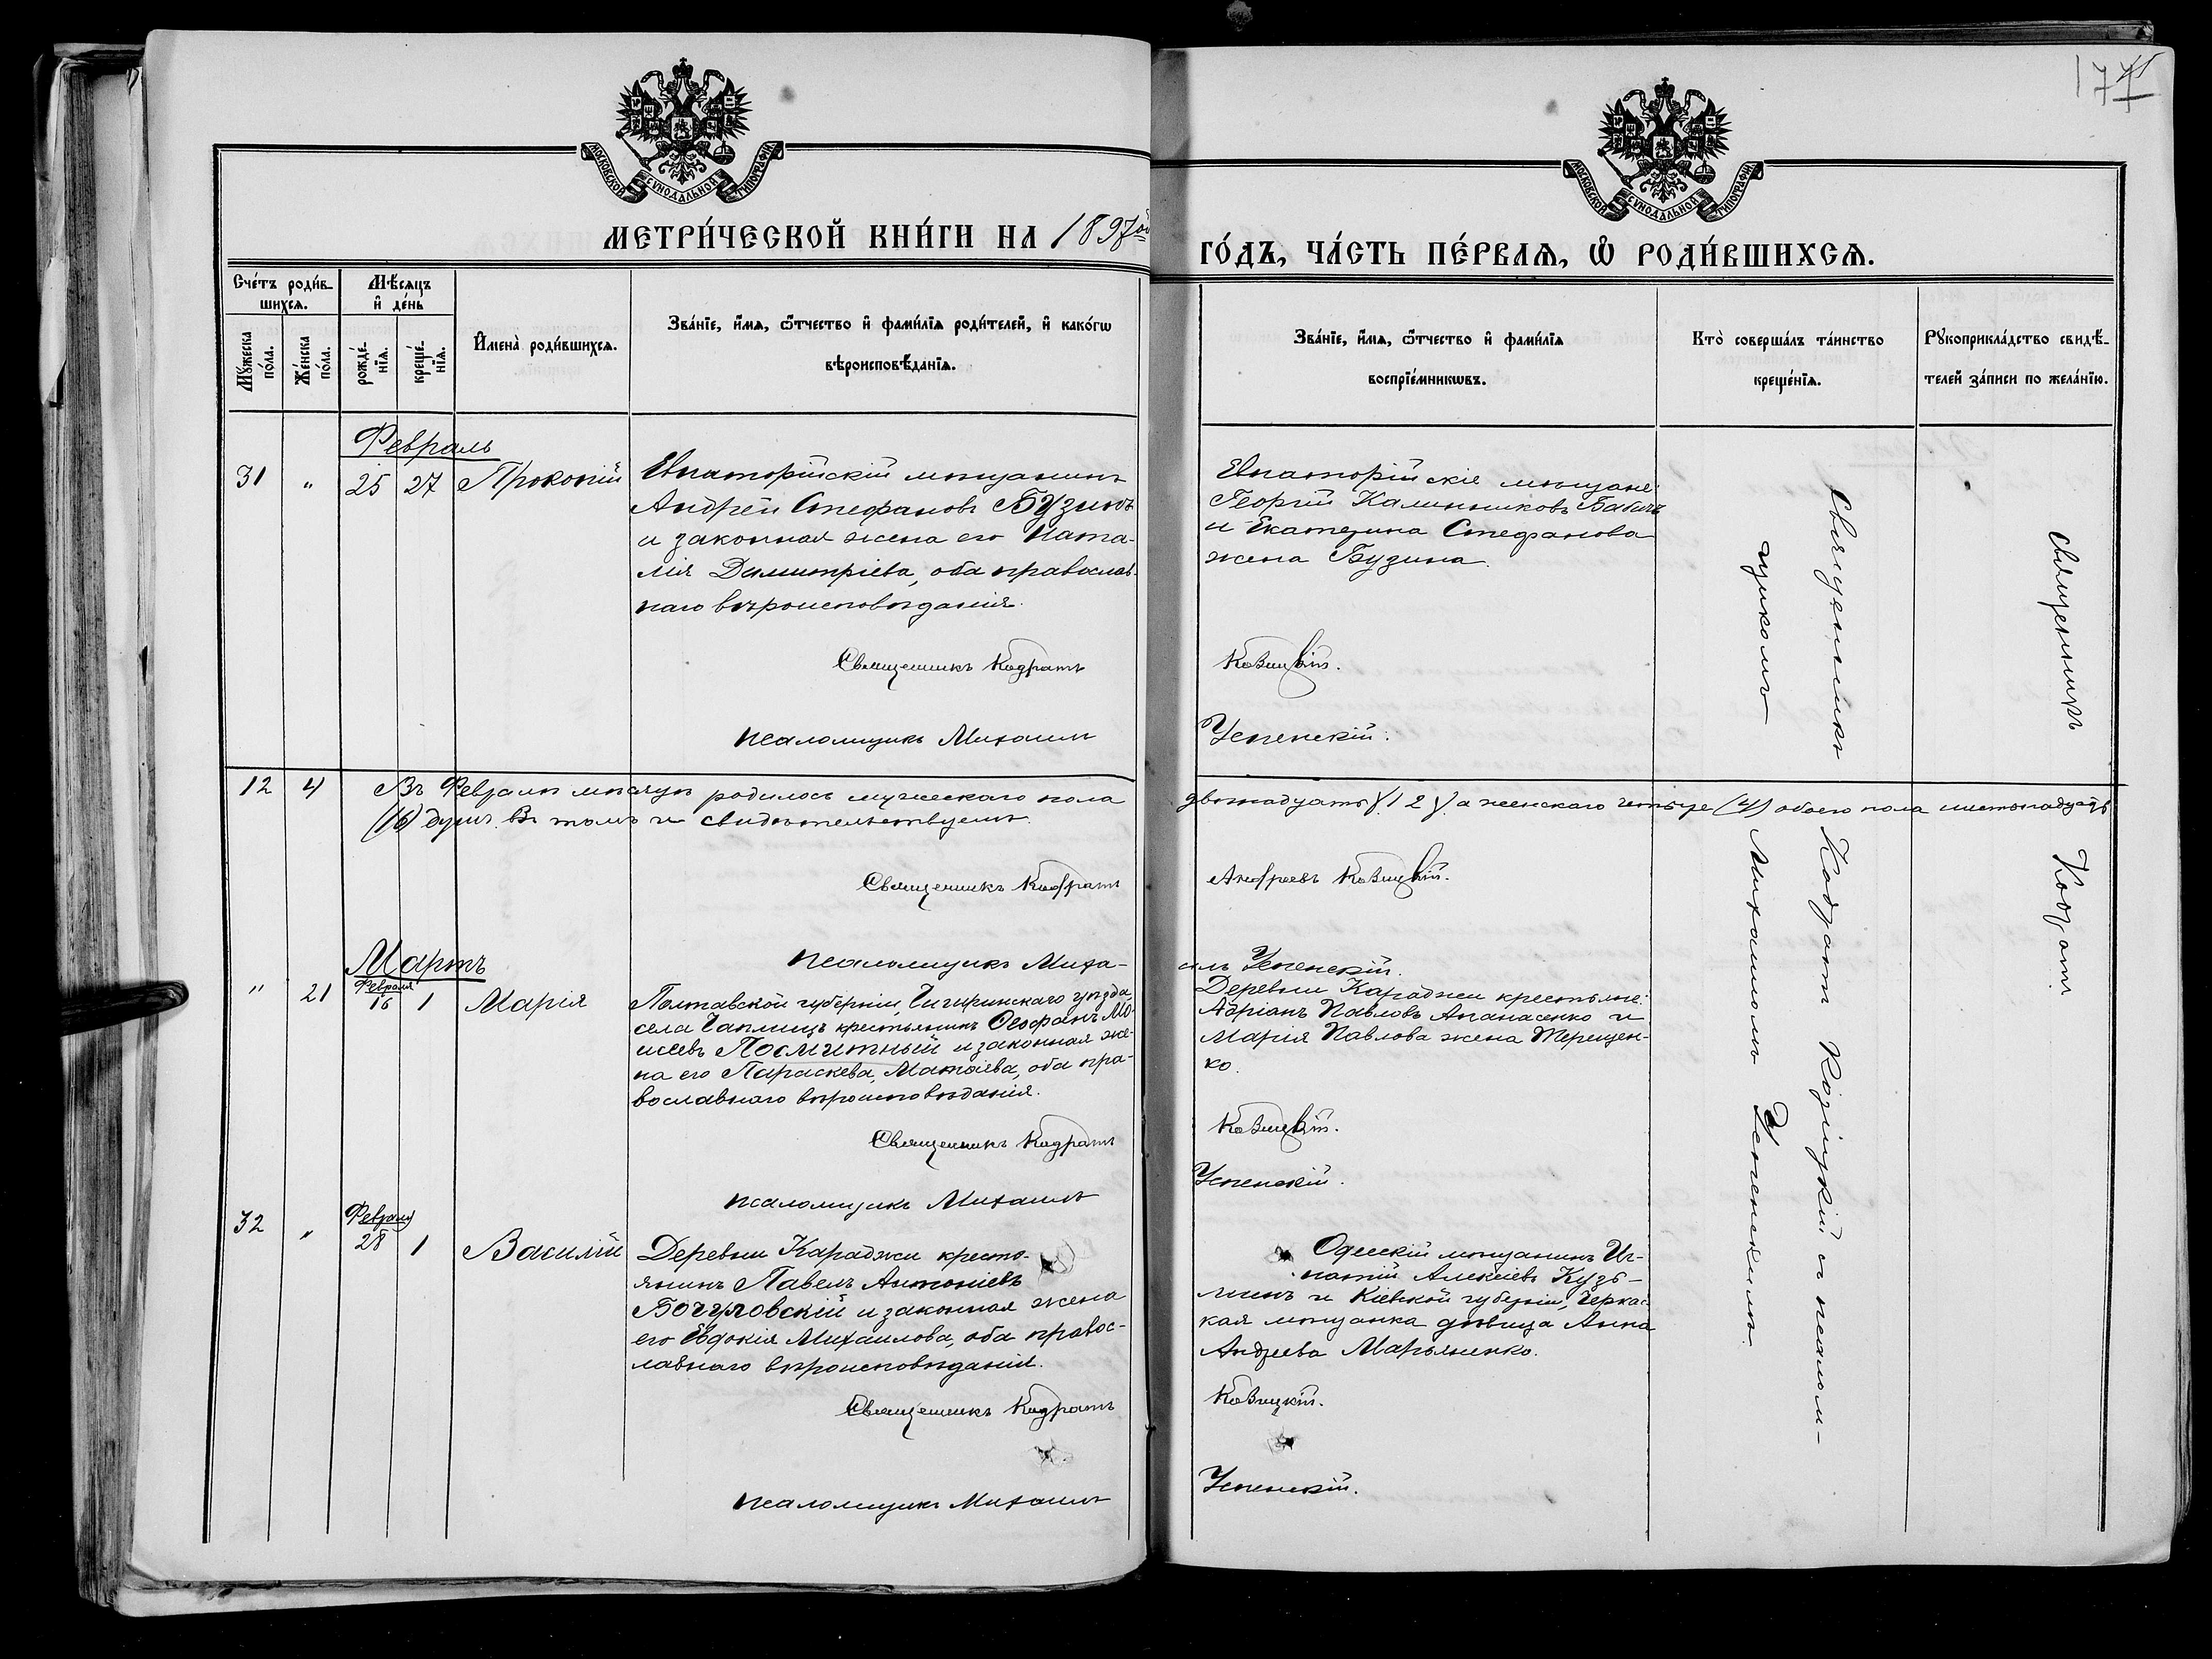 177
МОСКОВСКОЙ СѴНОДАЛЬНОЙ ТИПОГРАФІИ
МОСКОВСКОЙ СѴНОДАЛЬНОЙ ТИПОГРАФІИ
МЕТРИ́ЧЕСКОЙ КНИ́ГИ НА 1897ой
ГО́ДЪ, ЧА́СТЬ ПЕ́РВАѦ, Ѡ҆ РОДИ́ВШИХСѦ.
Сче́тъ роди́в-
шихсѧ.
Мꙋ́жеска
по́ла.
Же́нска
по́ла.
Мѣ́сяцъ
и҆ де́нь
рожде́-
нїѧ.
креще́-
нїѧ.
И҆мена̀ роди́вшихсѧ.
Зва́нїе, и҆́мѧ, ѻ҆́тчество и҆ фами́лїѧ роди́телей, и҆ како́гѡ
вѣроисповѣ́данїѧ.
Зва́нїе, и҆́мѧ, ѻ҆́тчество и҆ фами́лїѧ
воспрїе́мникѡвъ.
Кто̀ соверша́лъ та́инство
креще́нїѧ.
Рꙋкоприкла́дство свидѣ́-
телей за́писи по жела́нїю.
Февраль
31 " 25 27 Прокопій
Евпаторійскій мѣщанинъ
Андрей Стефановъ Бузинъ
и законная жена его Ната-
лія Димитріева, оба православ-
наго вѣроисповѣданія.
Священникъ Кодратъ
псаломщикъ Михаилъ
Евпаторійскіе мѣщане:
Георгій Калинниковъ Бабичъ
и Екатерина Стефанова
жена Бузина.
Козицкій.
Успенскій.
12 4 Въ Февралѣ мѣсяцѣ родилось мужескаго пола
двѣнадцать (12), а женскаго четыре (4) обоего пола шестьнадцать
(16) душъ. Въ томъ и свидѣтельствуемъ.
Священникъ Кодратъ
Андреевъ Козицкій.
псаломщикъ Миха-
илъ Успенскій.
Мартъ
" 21 Февраля 16 1 Марія
Полтавской губерніи, Чигиринскаго уѣзда,
села Чаплищъ крестьянинъ Ѳеофанъ Мо-
исеевъ Посмитный и законная же-
на его Параскева Матѳіева, оба пра-
вославнаго вѣроисповѣданія.
Священникъ Кодратъ
псаломщикъ Михаилъ
Деревни Караджи крестьяне:
Адріанъ Павловъ Апанасенко и
Марія Павлова жена Терещен-
ко.
Козицкій.
Успенскій.
32 " Февраля 28 1 Василій
Деревни Караджи кресть-
янинъ Павелъ Антоніевъ
Бочуловскій и законная жена
его Евдокія Михаилова, оба правос-
лавнаго вѣроисповѣданія.
Священникъ Кодратъ
псаломщикъ Михаилъ
Одесскій мѣщанинъ Иг-
натій Алексіевъ Кузь-
минъ и Кіевской губерніи, Черкас-
кая мѣщанка дѣвица Анна
Андреева Марьяненко.
Козицкій.
Успенскій.
Священникъ Кодратъ Козицкій съ псалом-
щикомъ Михаиломъ Успенскимъ.
Священникъ Кодратъ